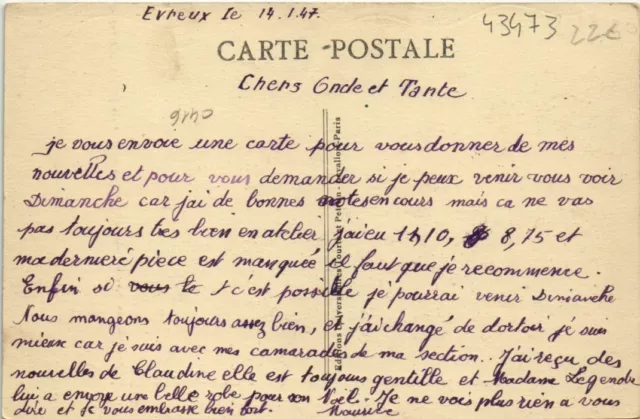 Evreux le 14.1.47.
43473
226
CARTE POSTALE
Chers Oncle et Tante
je vous envoie une carte pour vous donner de mes
nouvelles et pour vous demander si je peux venir vous voir
Dimanche car j'ai de bonnes notes en cours mais ca ne vas
pas toujours tres bien en atelier j'ai eu 11, 10, 8,75 et
ma derniere piece est manquée il faut que je recommence.
Enfin si vous le c'est possible je pourrai venir Dimanche
Nous mangeons toujours assez bien, et j'ai changé de dortoir je suis
mieux car je suis avec mes camarades de ma section. J'ai reçu des
nouvelles de Claudine elle est toujours gentille et Madame Legendre
lui a envoye une belle robe pour son Noël. Je ne vois plus rien a vous
dire et je vous embrasse bien fort. Maurice